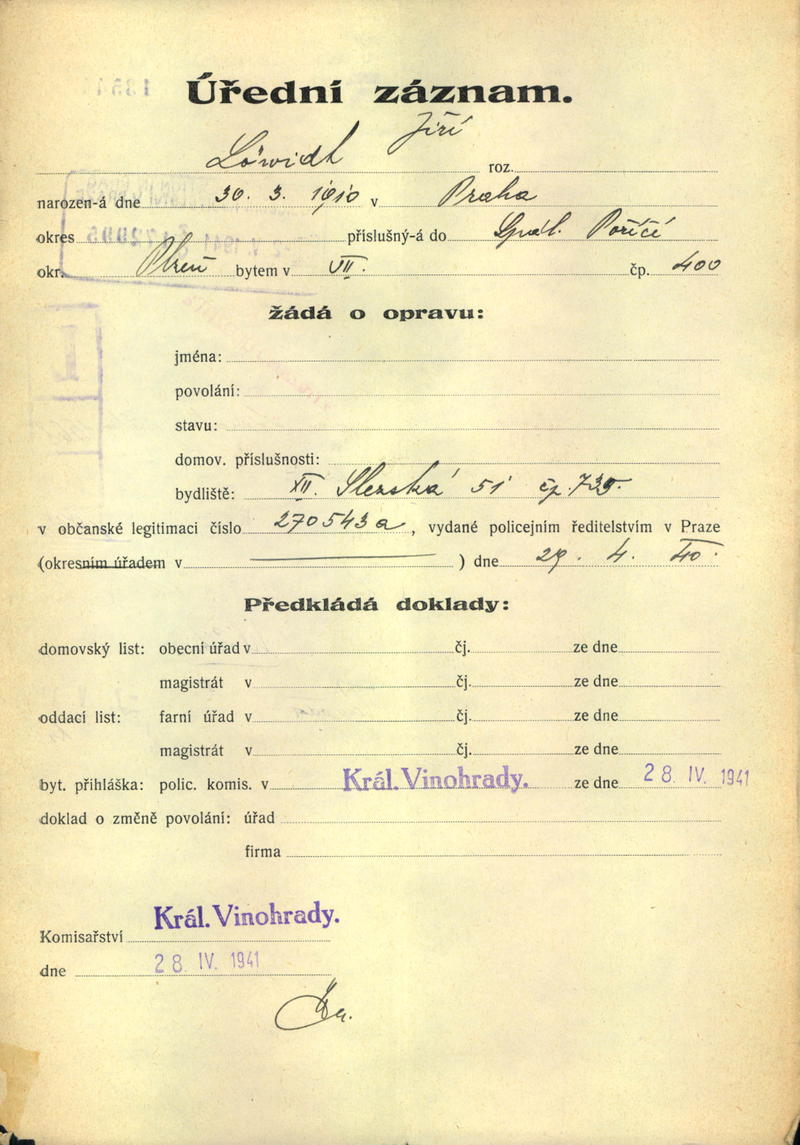 Úřední záznam.
Löwidt Jiří roz.
narozen-á dne 30. 3. 1910 v Praha
okres příslušný-á do Spál. Poříčí
okr. Plzeň bytem v VII. čp. 400
žádá o opravu:
jména:
povolání:
stavu:
domov. příslušnosti:
bydliště: XII. Slezská 51 čp. 739.
v občanské legitimaci číslo 270543a, vydané policejním ředitelstvím v Praze
(okresním úřadem v ) dne 29. 4. 40.
Předkládá doklady:
domovský list: obecní úřad v čj. ze dne
magistrát v čj. ze dne
oddací list: farní úřad v čj. ze dne
magistrát v čj. ze dne
byt. přihláška: polic. komis. v Král. Vinohrady. ze dne 28. IV. 1941
doklad o změně povolání: úřad
firma
Komisařství Král. Vinohrady.
dne 28. IV. 1941